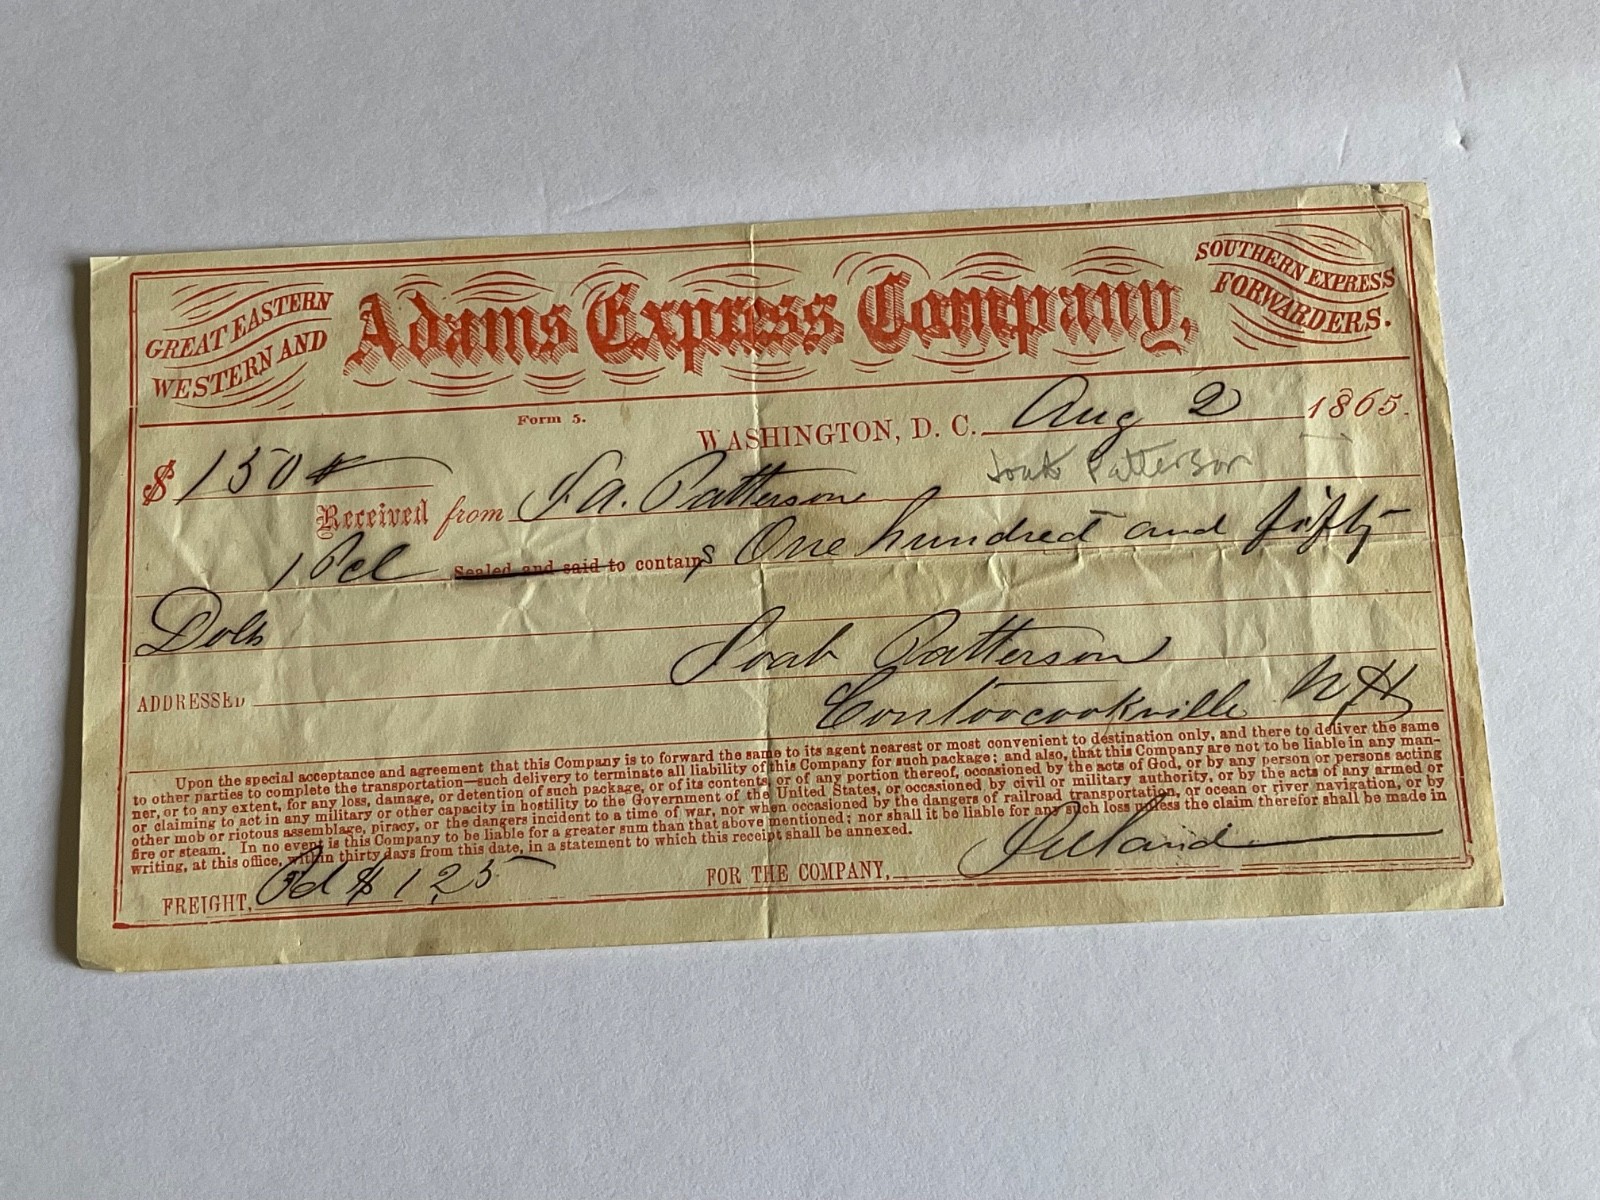 GREAT EASTERN
WESTERN AND
Adams Express Company,
SOUTHERN EXPRESS
FORWARDERS.
Form 5.
WASHINGTON, D. C. Aug 2 1865.
$ 150
Joab Patterson
Received from J. A. Patterson
1 Pcl Sealed and said to contains One hundred and fifty
Dols
ADDRESSED Joab Patterson
Contoocookville N H
Upon the special acceptance and agreement that this Company is to forward the same to its agent nearest or most convenient to destination only, and there to deliver the same
to other parties to complete the transportation—such delivery to terminate all liability of this Company for such package; and also, that this Company are not to be liable in any man-
ner, or to any extent, for any loss, damage, or detention of such package, or of its contents, or of any portion thereof, occasioned by the acts of God, or by any person or persons acting
or claiming to act in any military or other capacity in hostility to the Government of the United States, or occasioned by civil or military authority, or by the acts of any armed or
other mob or riotous assemblage, piracy, or the dangers incident to a time of war, nor when occasioned by the dangers of railroad transportation, or ocean or river navigation, or by
fire or steam. In no event is this Company to be liable for a greater sum than that above mentioned; nor shall it be liable for any such loss unless the claim therefor shall be made in
writing, at this office, within thirty days from this date, in a statement to which this receipt shall be annexed.
FREIGHT, Pd $ 1.25
FOR THE COMPANY,